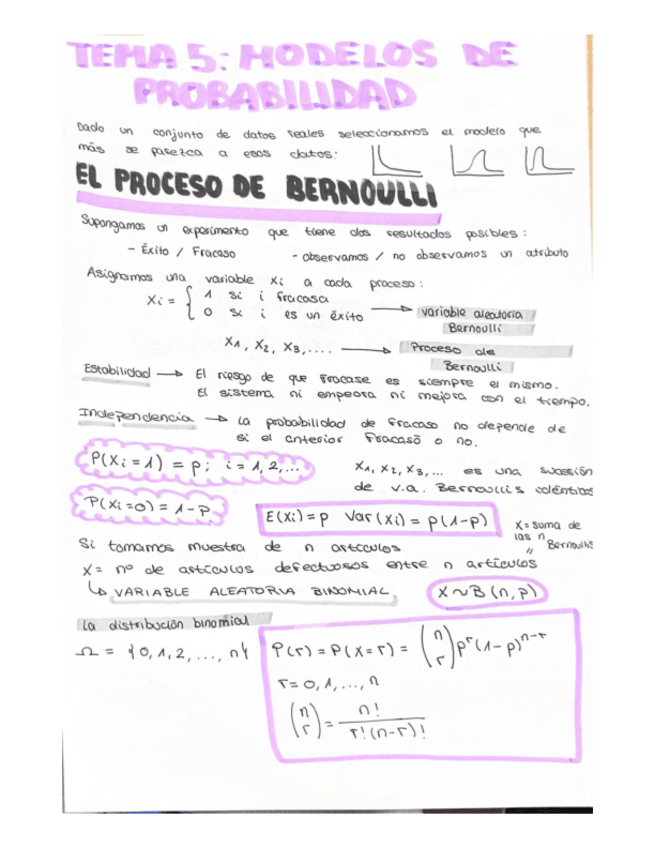 TEMA 5: MODELOS DE
PROBABILIDAD
Dado un conjunto de datos reales seleccionamos el modelo que
más se parezca a esos datos:
EL PROCESO DE BERNOULLI
Supongamos un experimento que tiene dos resultados posibles:
- Éxito / Fracaso - observamos / no observamos un atributo
Asignamos una variable Xi a cada proceso:
Xi = { 1 si i fracasa
0 si i es un éxito → variable aleatoria
Bernoulli
X1, X2, X3, .... → Proceso de
Bernoulli
Estabilidad → El riesgo de que fracase es siempre el mismo.
El sistema ni empeora ni mejora con el tiempo.
Independencia → La probabilidad de fracaso no depende de
si el anterior fracasó o no.
P(Xi = 1) = p; i = 1, 2, ...
X1, X2, X3, ... es una sucesión
de v.a. Bernoullis idénticas
P(Xi = 0) = 1 - P
E(Xi) = p Var(Xi) = p(1-p)
X = suma de
las n
" Bernoullis
Si tomamos muestra de n artículos
X = nº de artículos defectuosos entre n artículos
↳ VARIABLE ALEATORIA BINOMIAL X ~ B (n, p)
La distribución binomial
Ω = {0, 1, 2, ..., n}
P(r) = P(X = r) = (n r) p^r (1-p)^n-r
r = 0, 1, ..., n
(n r) = n! / r! (n-r)!